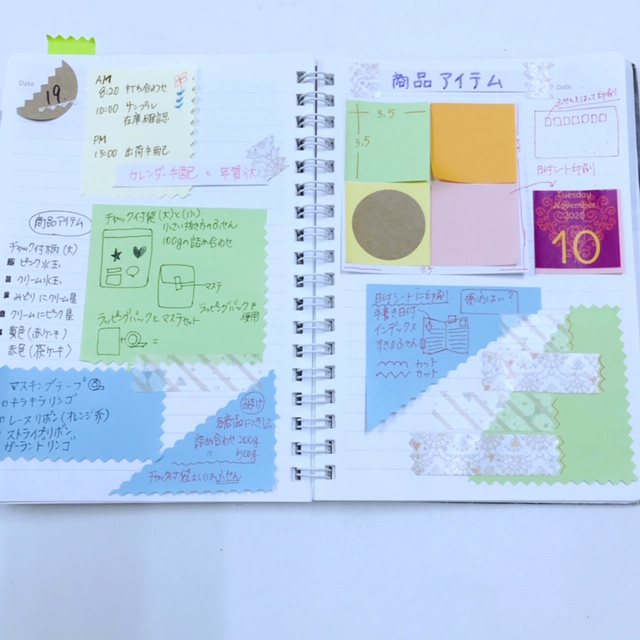 Date
19
AM
8:20 打ち合わせ
10:00 サンプル
在庫確認
PM
13:00 出荷手配
カレンダー手配と年賀状
商品アイテム
チャック付柄(大)
ピンク水玉
クリーム水玉
みどりにクリーム星
クリームにピンク星
茶色(赤ケーキ)
赤色(茶ケーキ)
チャック付袋(大)と(小)
小さい掛け方のふせん
100gの詰め合わせ
マステ
ラッピングパックを
使用
ラッピングパックとマステセット
マスキングテープ③
キラキラリンゴ
レースリボン(オレンジ赤)
ストライプリボン
ガーランドリンゴ
おまけ
各商品につき
詰め合わせ 200g
〃 500g
商品アイテム
Date
3.5
3.5
ふせんをはって印刷
日付シート印刷
Tuesday
November
2020
10
日付シートに印刷
手書き日付
インデックス
すきまふせん
使い方はい?
カット
カット